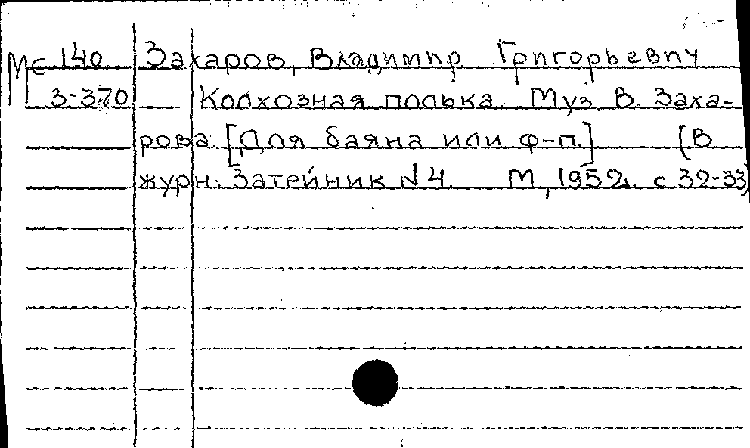 Мс 140 Захаров, Владимир Григорьевич
З-370 Колхозная полька. Муз. В. Заха-
рова. [Для баяна или ф-п.] (В
журн. Затейник №4 М., 1952. с 32-33)